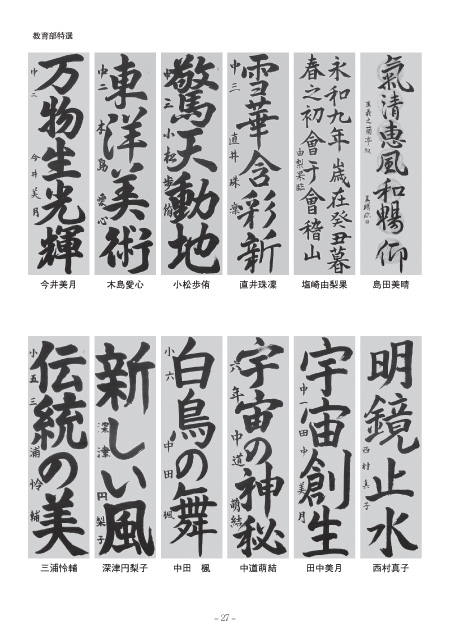 教育部特選
氣清惠風和暢仰
王羲之蘭亭叙
永和九年歳在癸丑暮
春之初會于會稽山
由梨果臨
雪華含彩新
中三 直井珠凜
驚天動地
中三 小松歩侑
東洋美術
中二 木島愛心
万物生光輝
中二 今井美月
今井美月
木島愛心
小松歩侑
直井珠凜
塩崎由梨果
島田美晴
明鏡止水
西村真子
宇宙創生
中一 田中美月
宇宙の神秘
六年 中道萌結
白鳥の舞
小六 中田楓
新しい風
深津円梨子
伝統の美
小五 三浦怜輔
三浦怜輔
深津円梨子
中田 楓
中道萌結
田中美月
西村真子
– 27 –